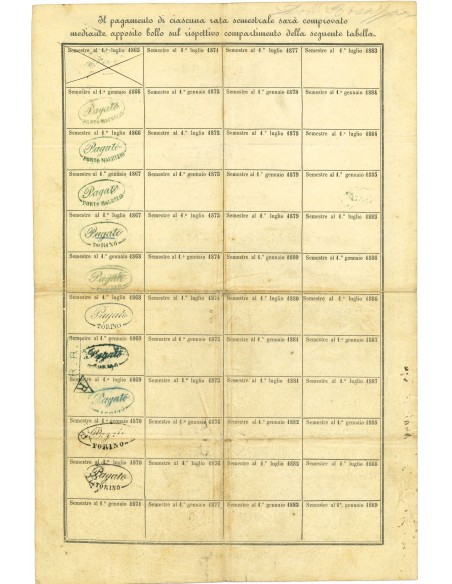 Il pagamento di ciascuna rata semestrale sarà comprovato
mediante apposito bollo sul rispettivo compartimento della seguente tabella.
Semestre al 1.° luglio 1865 Semestre al 1.° luglio 1871 Semestre al 1.° luglio 1877 Semestre al 1.° luglio 1883
Semestre al 1.° gennaio 1866 Semestre al 1.° gennaio 1872 Semestre al 1.° gennaio 1878 Semestre al 1.° gennaio 1884
Pagato
PORTO MAURIZIO
Semestre al 1.° luglio 1866 Semestre al 1.° luglio 1872 Semestre al 1.° luglio 1878 Semestre al 1.° luglio 1884
Pagato
PORTO MAURIZIO
Semestre al 1.° gennaio 1867 Semestre al 1.° gennaio 1873 Semestre al 1.° gennaio 1879 Semestre al 1.° gennaio 1885
Pagato
PORTO MAURIZIO
Semestre al 1.° luglio 1867 Semestre al 1.° luglio 1873 Semestre al 1.° luglio 1879 Semestre al 1.° luglio 1885
Pagato
TORINO
Semestre al 1.° gennaio 1868 Semestre al 1.° gennaio 1874 Semestre al 1.° gennaio 1880 Semestre al 1.° gennaio 1886
Pagato
Semestre al 1.° luglio 1868 Semestre al 1.° luglio 1874 Semestre al 1.° luglio 1880 Semestre al 1.° luglio 1886
Pagato
TORINO
Semestre al 1.° gennaio 1869 Semestre al 1.° gennaio 1875 Semestre al 1.° gennaio 1881 Semestre al 1.° gennaio 1887
Pagato
TORINO
Semestre al 1.° luglio 1869 Semestre al 1.° luglio 1875 Semestre al 1.° luglio 1881 Semestre al 1.° luglio 1887
Pagato
Semestre al 1.° gennaio 1870 Semestre al 1.° gennaio 1876 Semestre al 1.° gennaio 1882 Semestre al 1.° gennaio 1888
Pagato
TORINO
Semestre al 1.° luglio 1870 Semestre al 1.° luglio 1876 Semestre al 1.° luglio 1882 Semestre al 1.° luglio 1888
Pagato
TORINO
Semestre al 1.° gennaio 1871 Semestre al 1.° gennaio 1877 Semestre al 1.° gennaio 1883 Semestre al 1.° gennaio 1889